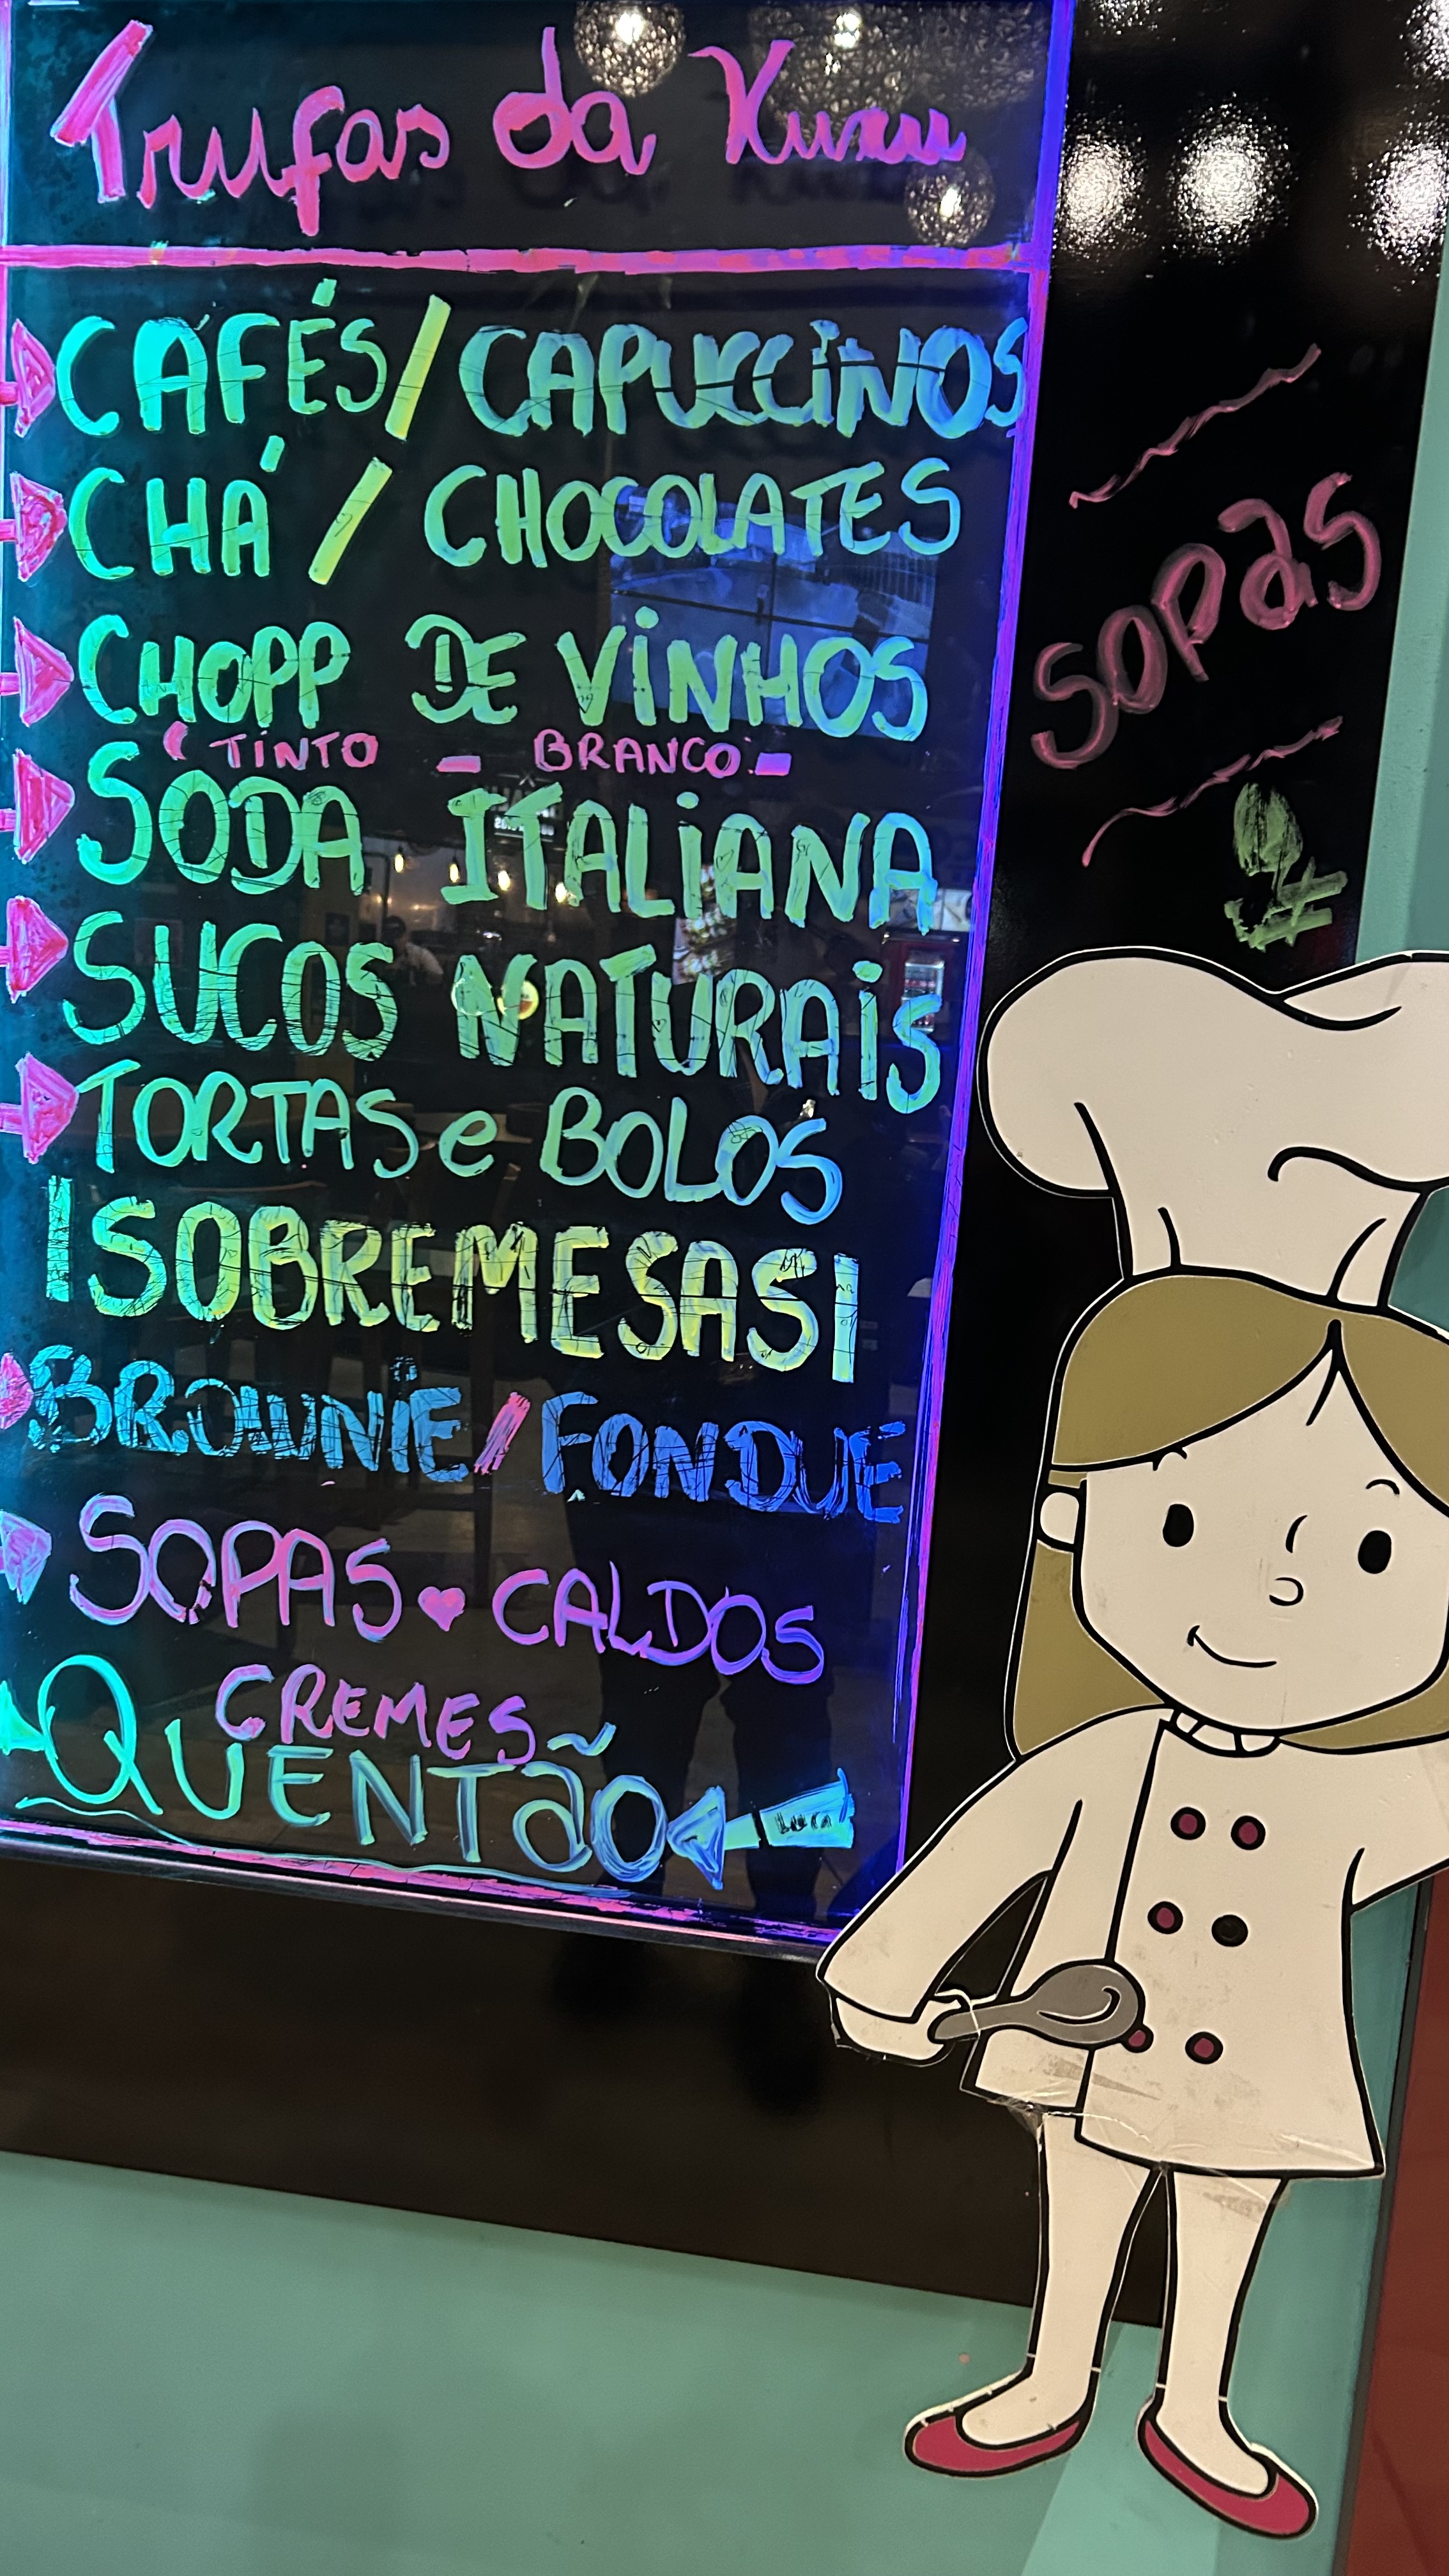 Trufas da Xuxu
CAFÉS/CAPUCCINOS
CHÁ / CHOCOLATES
CHOPP DE VINHOS
TINTO - BRANCO-
SODA ITALIANA
SUCOS NATURAIS
TORTAS e BOLOS
|SOBREMESAS|
BROWNIE/FONDUE
SOPAS♥CALDOS
CREMES
QUENTÃO
SOPAS